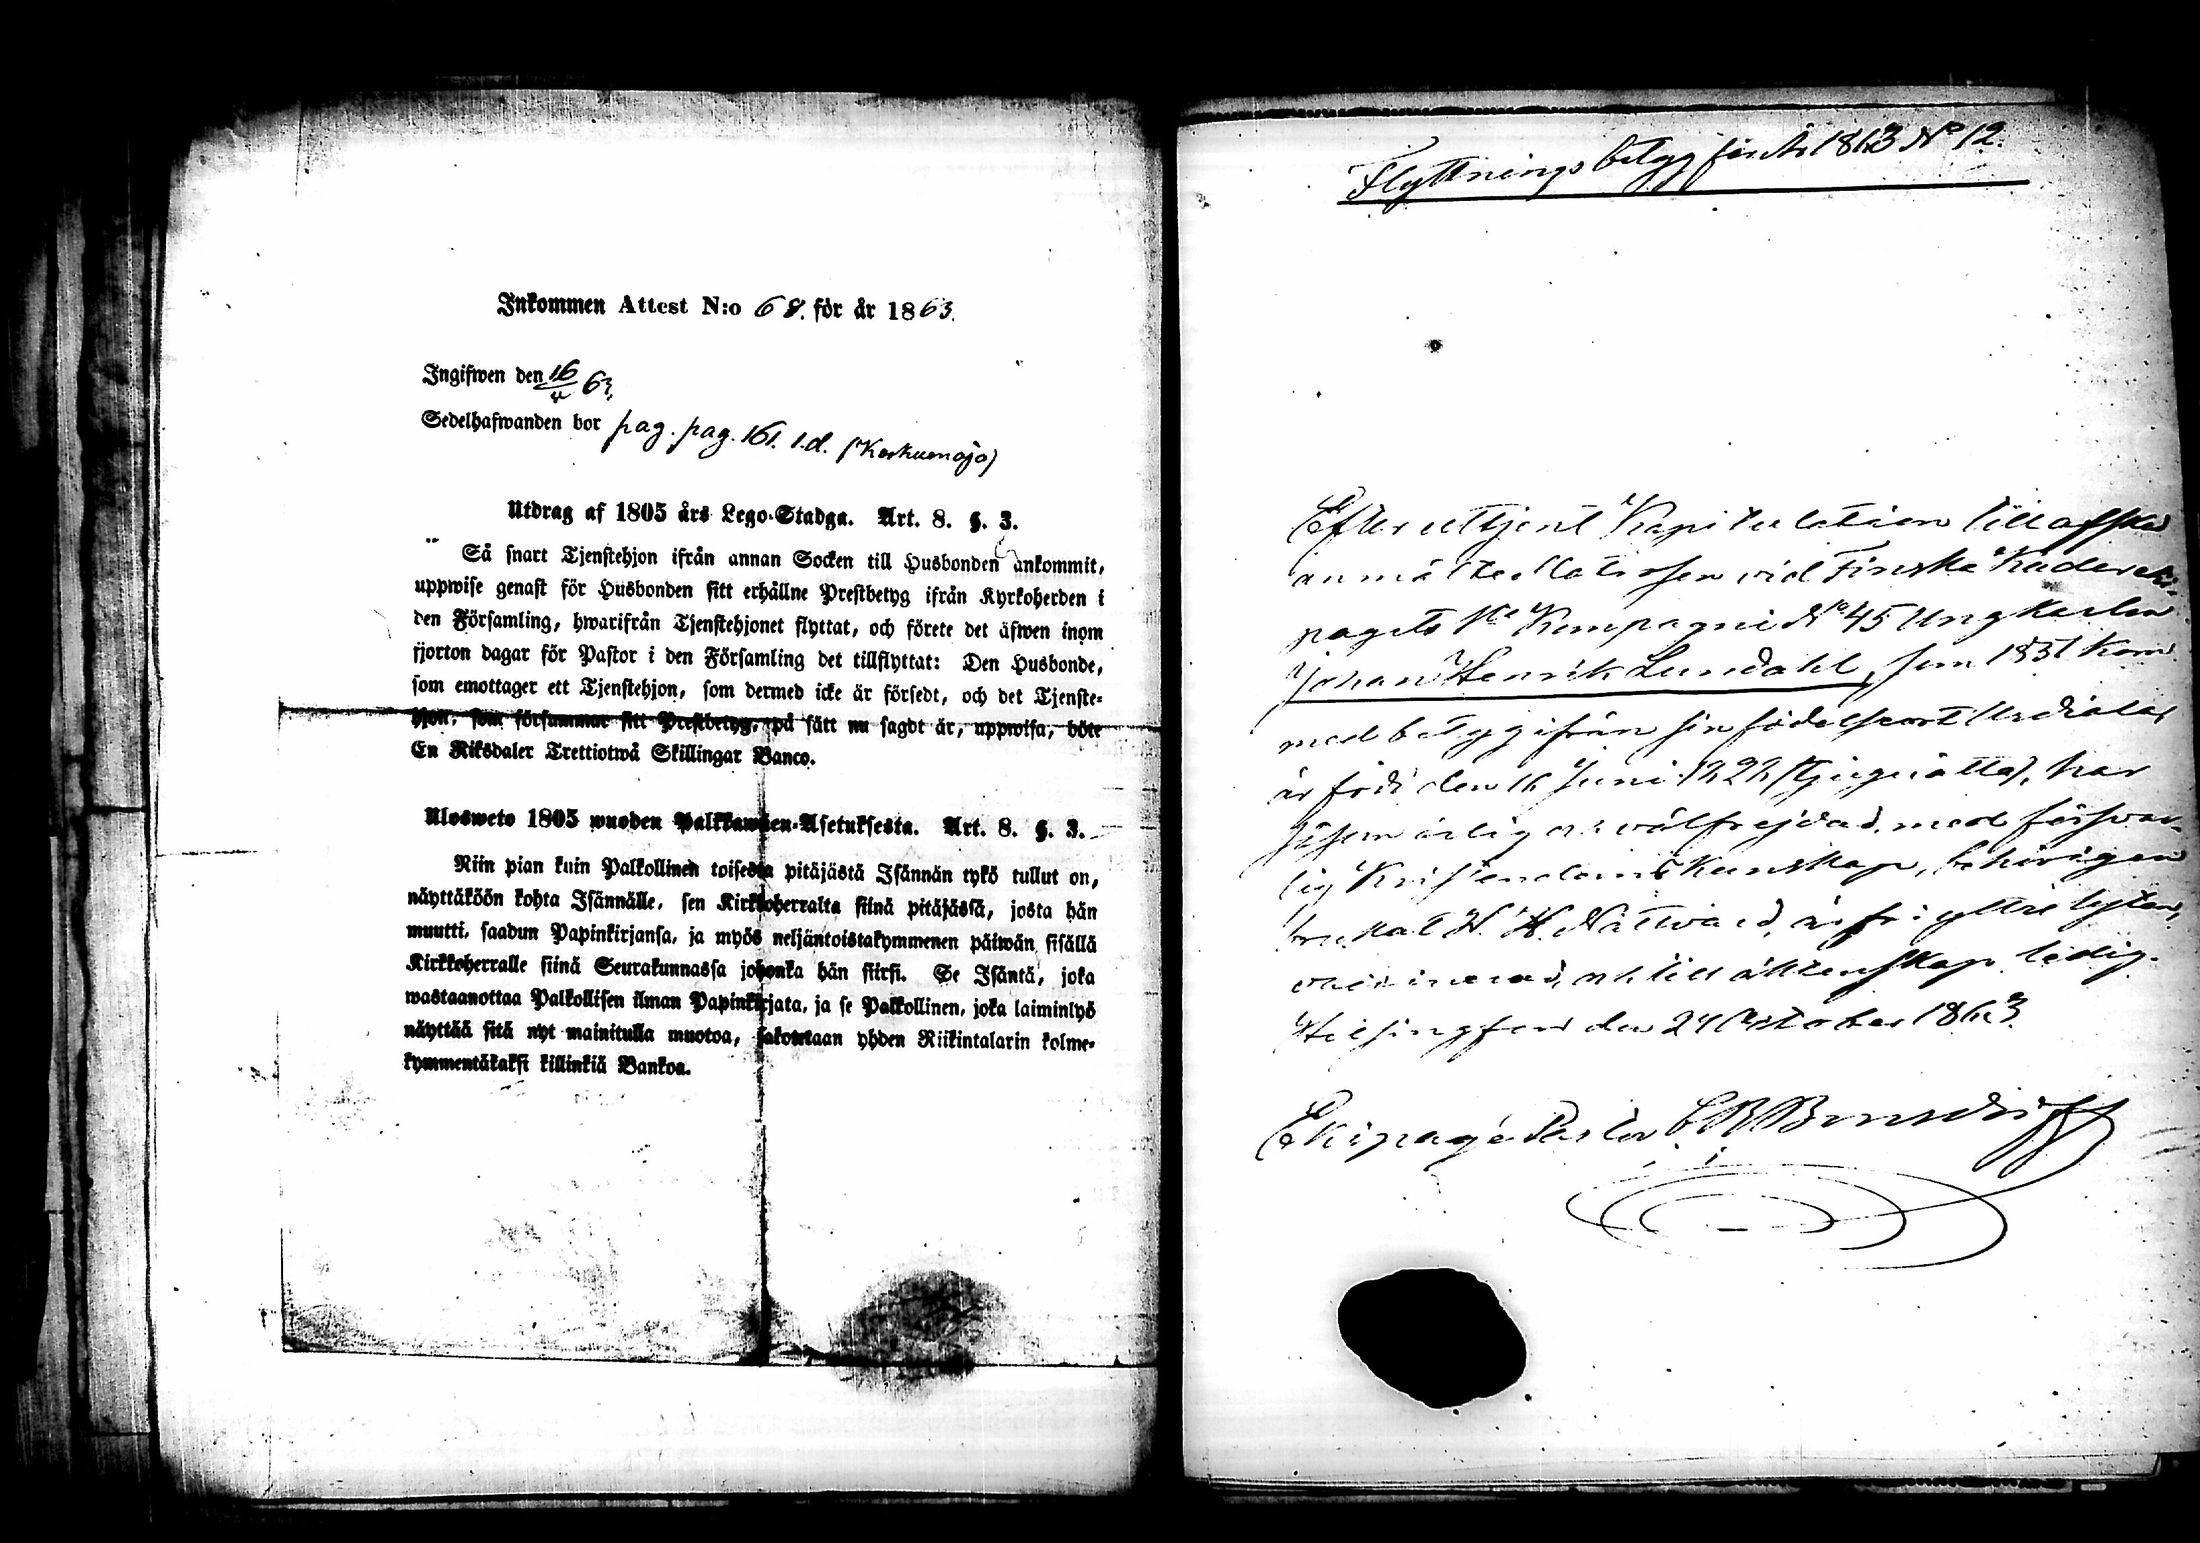 Inkommen Attest N:o 68. för år 1863.
Ingifwen den 16/11 63.
Sedelhafwanden bor pag. pag. 161. 1.d. (Keskuenoja)
Utdrag af 1805 års Lego-Stadga. Art. 8. §. 3.
Så snart Tjenstehjon ifrån annan Socken till Husbonden ankommit,
uppwise genast för Husbonden sitt erhållne Prestbetyg ifrån Kyrkoherden i
den Församling, hwarifrån Tjenstehjonet flyttat, och förete det äfwen inom
fjorton dagar för Pastor i den Församling det tillflyttat: Den Husbonde,
som emottager ett Tjenstehjon, som dermed icke är försedt, och det Tjenste-
hjon, som försummar sitt Prestbetyg, på sätt nu sagdt är, uppwisa, böte
En Riksdaler Trettiotwå Skillingar Banco.
Ulosweto 1805 wuoden Palkkawäen-Asetuksesta. Art. 8. §. 3.
Niin pian kuin Palkollinen toisesta pitäjästä Isännän tykö tullut on,
näyttäköön kohta Isännälle, sen Kirkkoherralta siinä pitäjässä, josta hän
muutti, saadun Papinkirjansa, ja myös neljäntoistakymmenen päiwän sisällä
Kirkkoherralle siinä Seurakunnassa johonka hän siirsi. Se Isäntä, joka
wastaanottaa Palkollisen ilman Papinkirjata, ja se Palkollinen, joka laiminlyö
näyttää sitä nyt mainitulla muotoa, sakoitetaan yhden Riikintalarin kolme-
kymmentäkaksi killinkiä Bankoa.
Flyttningsbetyg för År 1863 No 12.
Efter uttjent Kapitulation till afsked
anmälte Matrosen vid Finska Kadereki-
pagets 1sta Kompagni No 45 Ungkarlen
Johan Henrik Lundahl, som 1851 kom
med betyg ifrån sin födelseort Urdiala,
är född den 16 Juni 1828 (tjuguåtta), har
såsom ärlig och välfrejdad, med försvar-
lig Kristendomskunskap, behörigen
brukat H. H. Nattvard, är fri i yttre lyten,
vaccinerad, och till äktenskap ledig.
Helsingfors den 24 Oktober 1863.
Ekipagé Pastor